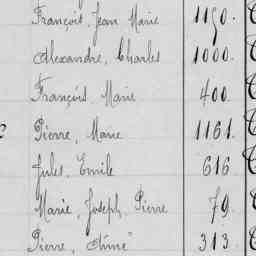 François, Jean Marie 1190.
Alexandre, Charles 1000.
François, Marie 400.
Pierre, Marie 1161.
Jules, Emile 616.
Marie, Joseph, Pierre 79.
Pierre, Aimé 313.